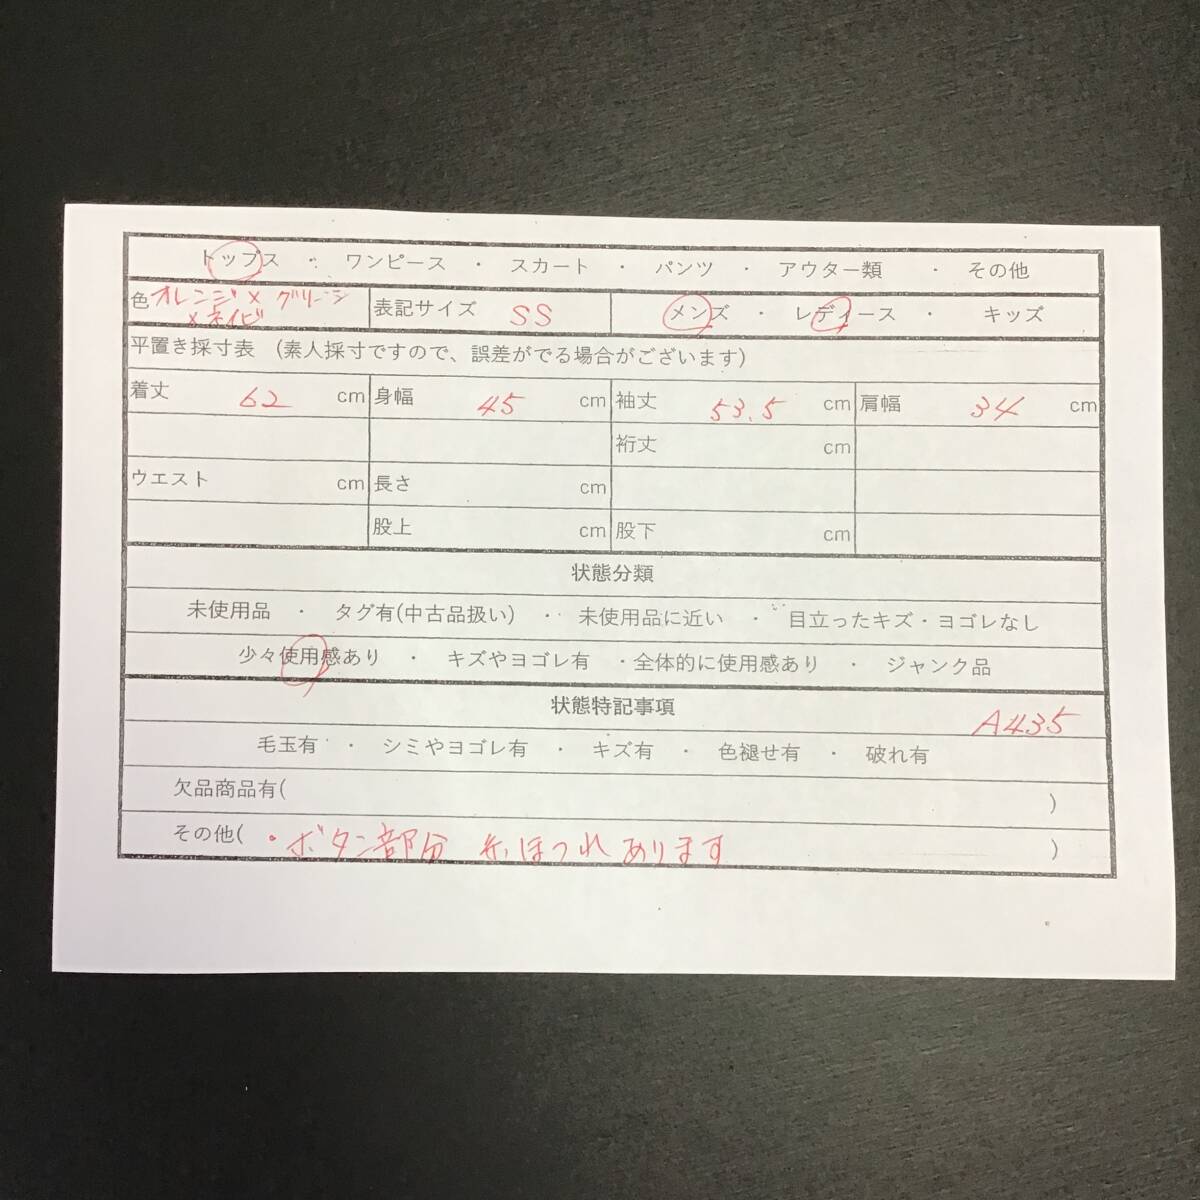 トップス ・ ワンピース ・ スカート ・ パンツ ・ アウター類 ・ その他
色 オレンジ×グリーン
×ネイビ
表記サイズ SS
メンズ ・ レディース ・ キッズ
平置き採寸表 (素人採寸ですので、誤差がでる場合がございます)
着丈 62 cm 身幅 45 cm 袖丈 53.5 cm 肩幅 34 cm
裄丈 cm
ウエスト cm 長さ cm
股上 cm 股下 cm
状態分類
未使用品 ・ タグ有(中古品扱い) ・ 未使用品に近い ・ 目立ったキズ・ヨゴレなし
少々使用感あり ・ キズやヨゴレ有 ・全体的に使用感あり ・ ジャンク品
状態特記事項 A435
毛玉有 ・ シミやヨゴレ有 ・ キズ有 ・ 色褪せ有 ・ 破れ有
欠品商品有( )
その他( ・ボタン部分 糸ほつれあります )